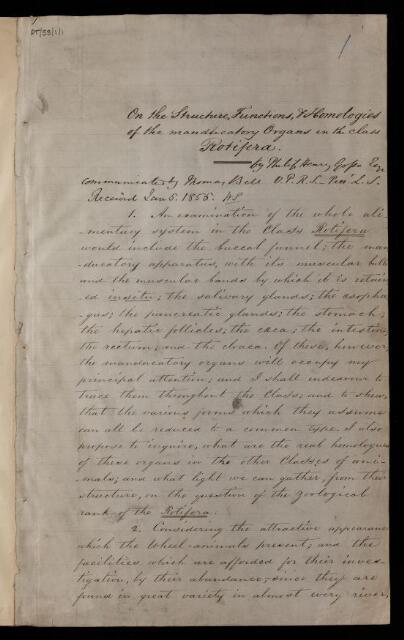 PT/53/1/1
1
On the Structure, Functions, & Homologies
of the manducatory Organs in the class
Rotifera.
by Philip Henry Gosse Esqr
communicated by Thomas Bell V.P.R.S. Pres. L.S.
Received Jan 5. 1855.
1. An examination of the whole ali-
mentary system in the Class Rotifera
would include the buccal funnel; the man-
-ducatory apparatus, with its muscular bulb
and the muscular bands by which it is retain-
ed in situ; the salivary glands; the œsopha-
-gus; the pancreatic glands; the stomach;
the hepatic follicles; the cæca; the intestine
the rectum; and the cloaca. Of these, however,
the manducatory organs will occupy my
principal attention; and I shall endeavour to
trace them throughout the Class; and to shew,
that the various forms which they assume
can all be reduced to a common type. I also
propose to inquire, what are the real homologues
of these organs in the other Classes of ani-
-mals; and what light we can gather, from their
structure, on the question of the zoological
rank of the Rotifera.
2. Considering the attractive appearance
which the Wheel-animals present; and the
facilities which are afforded for their inves-
-tigation, by their abundance; since they are
found in great variety in almost every river,